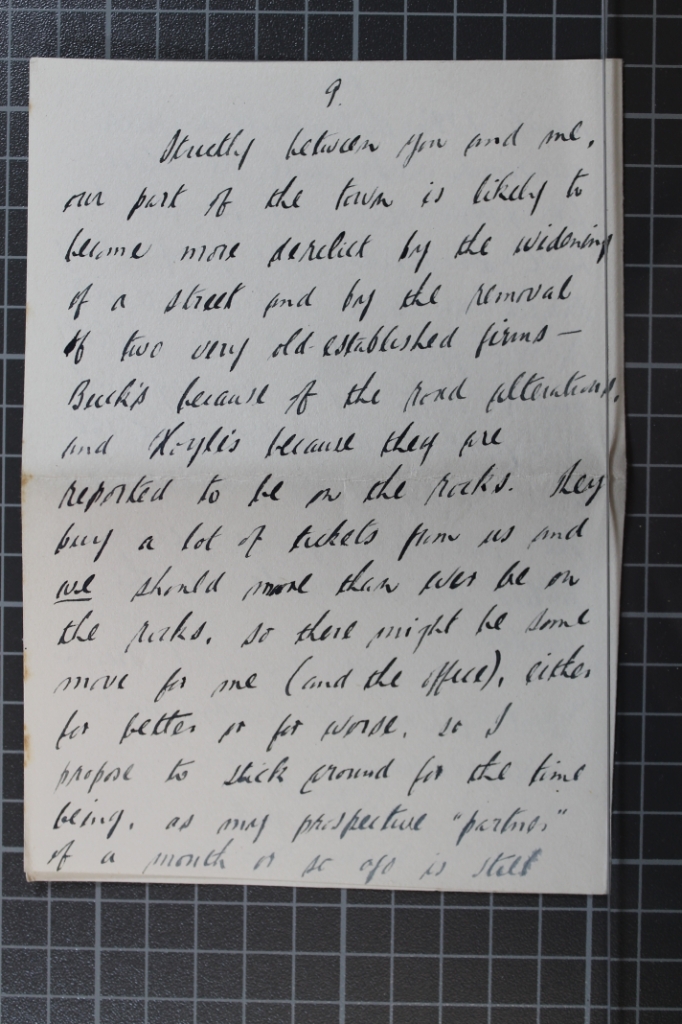 9.
Strictly between you and me,
our part of the town is likely to
become more derelict by the widening
of a street and by the removal
of two very old-established firms —
Buck's because of the road alterations,
and Hoyle's because they are
reported to be on the rocks. They
buy a lot of tickets from us and
we should more than ever be on
the rocks. So there might be some
move for me (and the office), either
for better or for worse. So I
propose to stick around for the time
being, as my prospective "partner"
of a month or so ago is still